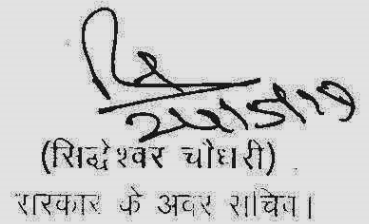 (सिद्धेश्वर चौधरी)
सरकार के अवर सचिव।